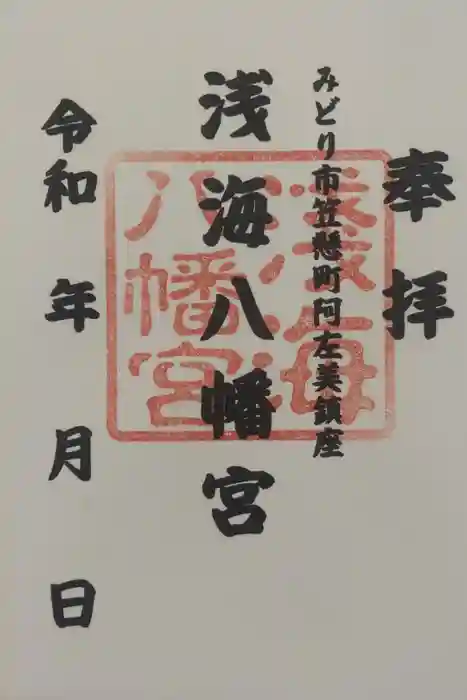 奉拝
みどり市笠懸町阿左美鎮座
浅海八幡宮
令和 年 月 日